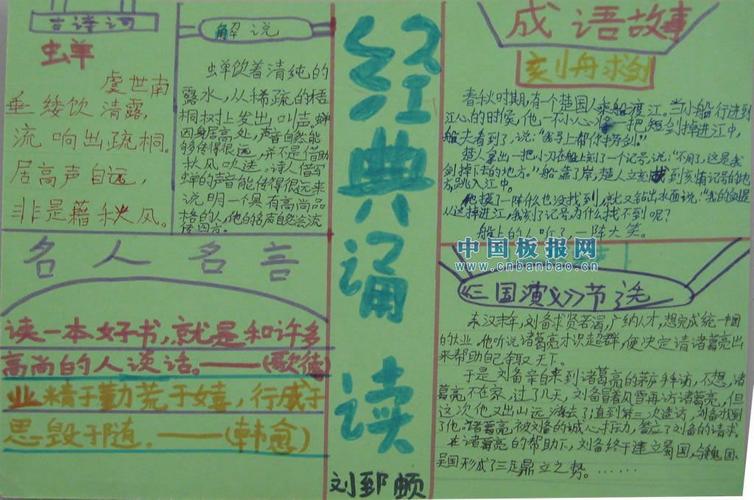 古诗词
蝉
虞世南
垂緌饮清露,
流响出疏桐。
居高声自远,
非是藉秋风。
解说
蝉饮着清纯的
露水,从稀疏的梧
桐树上发出叫声,蝉
因身居高处,声音自然能
够传得很远,并不是借助
秋风吹送。诗人借写
蝉的声音能传得很远来
说明一个具有高尚品
格的人,他的名声自然会流
传四方。
名人名言
读一本好书,就是和许多
高尚的人谈话。——(歌德)
业精于勤荒于嬉,行成于
思毁于随.——(韩愈)
经典诵读
刘郅頔
成语故事
刻舟求剑
春秋时期,有个楚国人乘船渡江。当小船行进到
江心的时候,他一不小心 把短剑掉进江中,
船夫看到了,说:"我马上帮你捞剑。"
楚人拿出一把小刀在船上刻了一个记号,说:"不用了,这是我
剑掉下去的地方。"船靠了岸,楚人立刻 到刻有记号的地
方跳入江中。
他摸了一阵, 也没找到,就又钻出水面说:"我的剑是
从这掉进江,我刻了记号,为什么找不到呢?
船上的人听了一阵大笑。
中国板报网
www.cnbanbao.cn
《三国演义》节选
东汉末年,刘备求贤若渴,广纳人才,想完成统一中国
的大业,他听说诸葛亮才识超群,便决定请诸葛亮出
来帮助自己 天下。
于是刘备亲自来到诸葛亮的茅 拜访,不想,诸
葛亮不在家,过了几天,刘备冒着风雪再访诸葛亮,但
这次他又出山远游去了,直到第三次造访,刘备才见到
了他,诸葛亮被刘备的诚心打动,答应了刘备的请求。
在诸葛亮的帮助下,刘备终于建立蜀国,与魏国、
吴国形成了三足鼎立之势。……